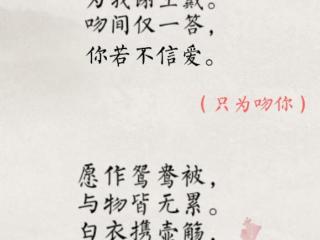 为我谢上戴。
吻间仅一答，
你若不信爱。
（只为吻你）
愿作鸳鸯被，
与物皆无累。
白衣携壶觞，